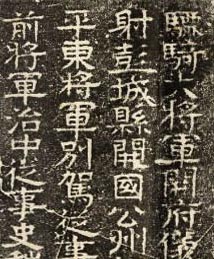 驃騎大將軍開府儀
射彭城縣開國公州
平東將軍別駕從事
前將軍治中從事史